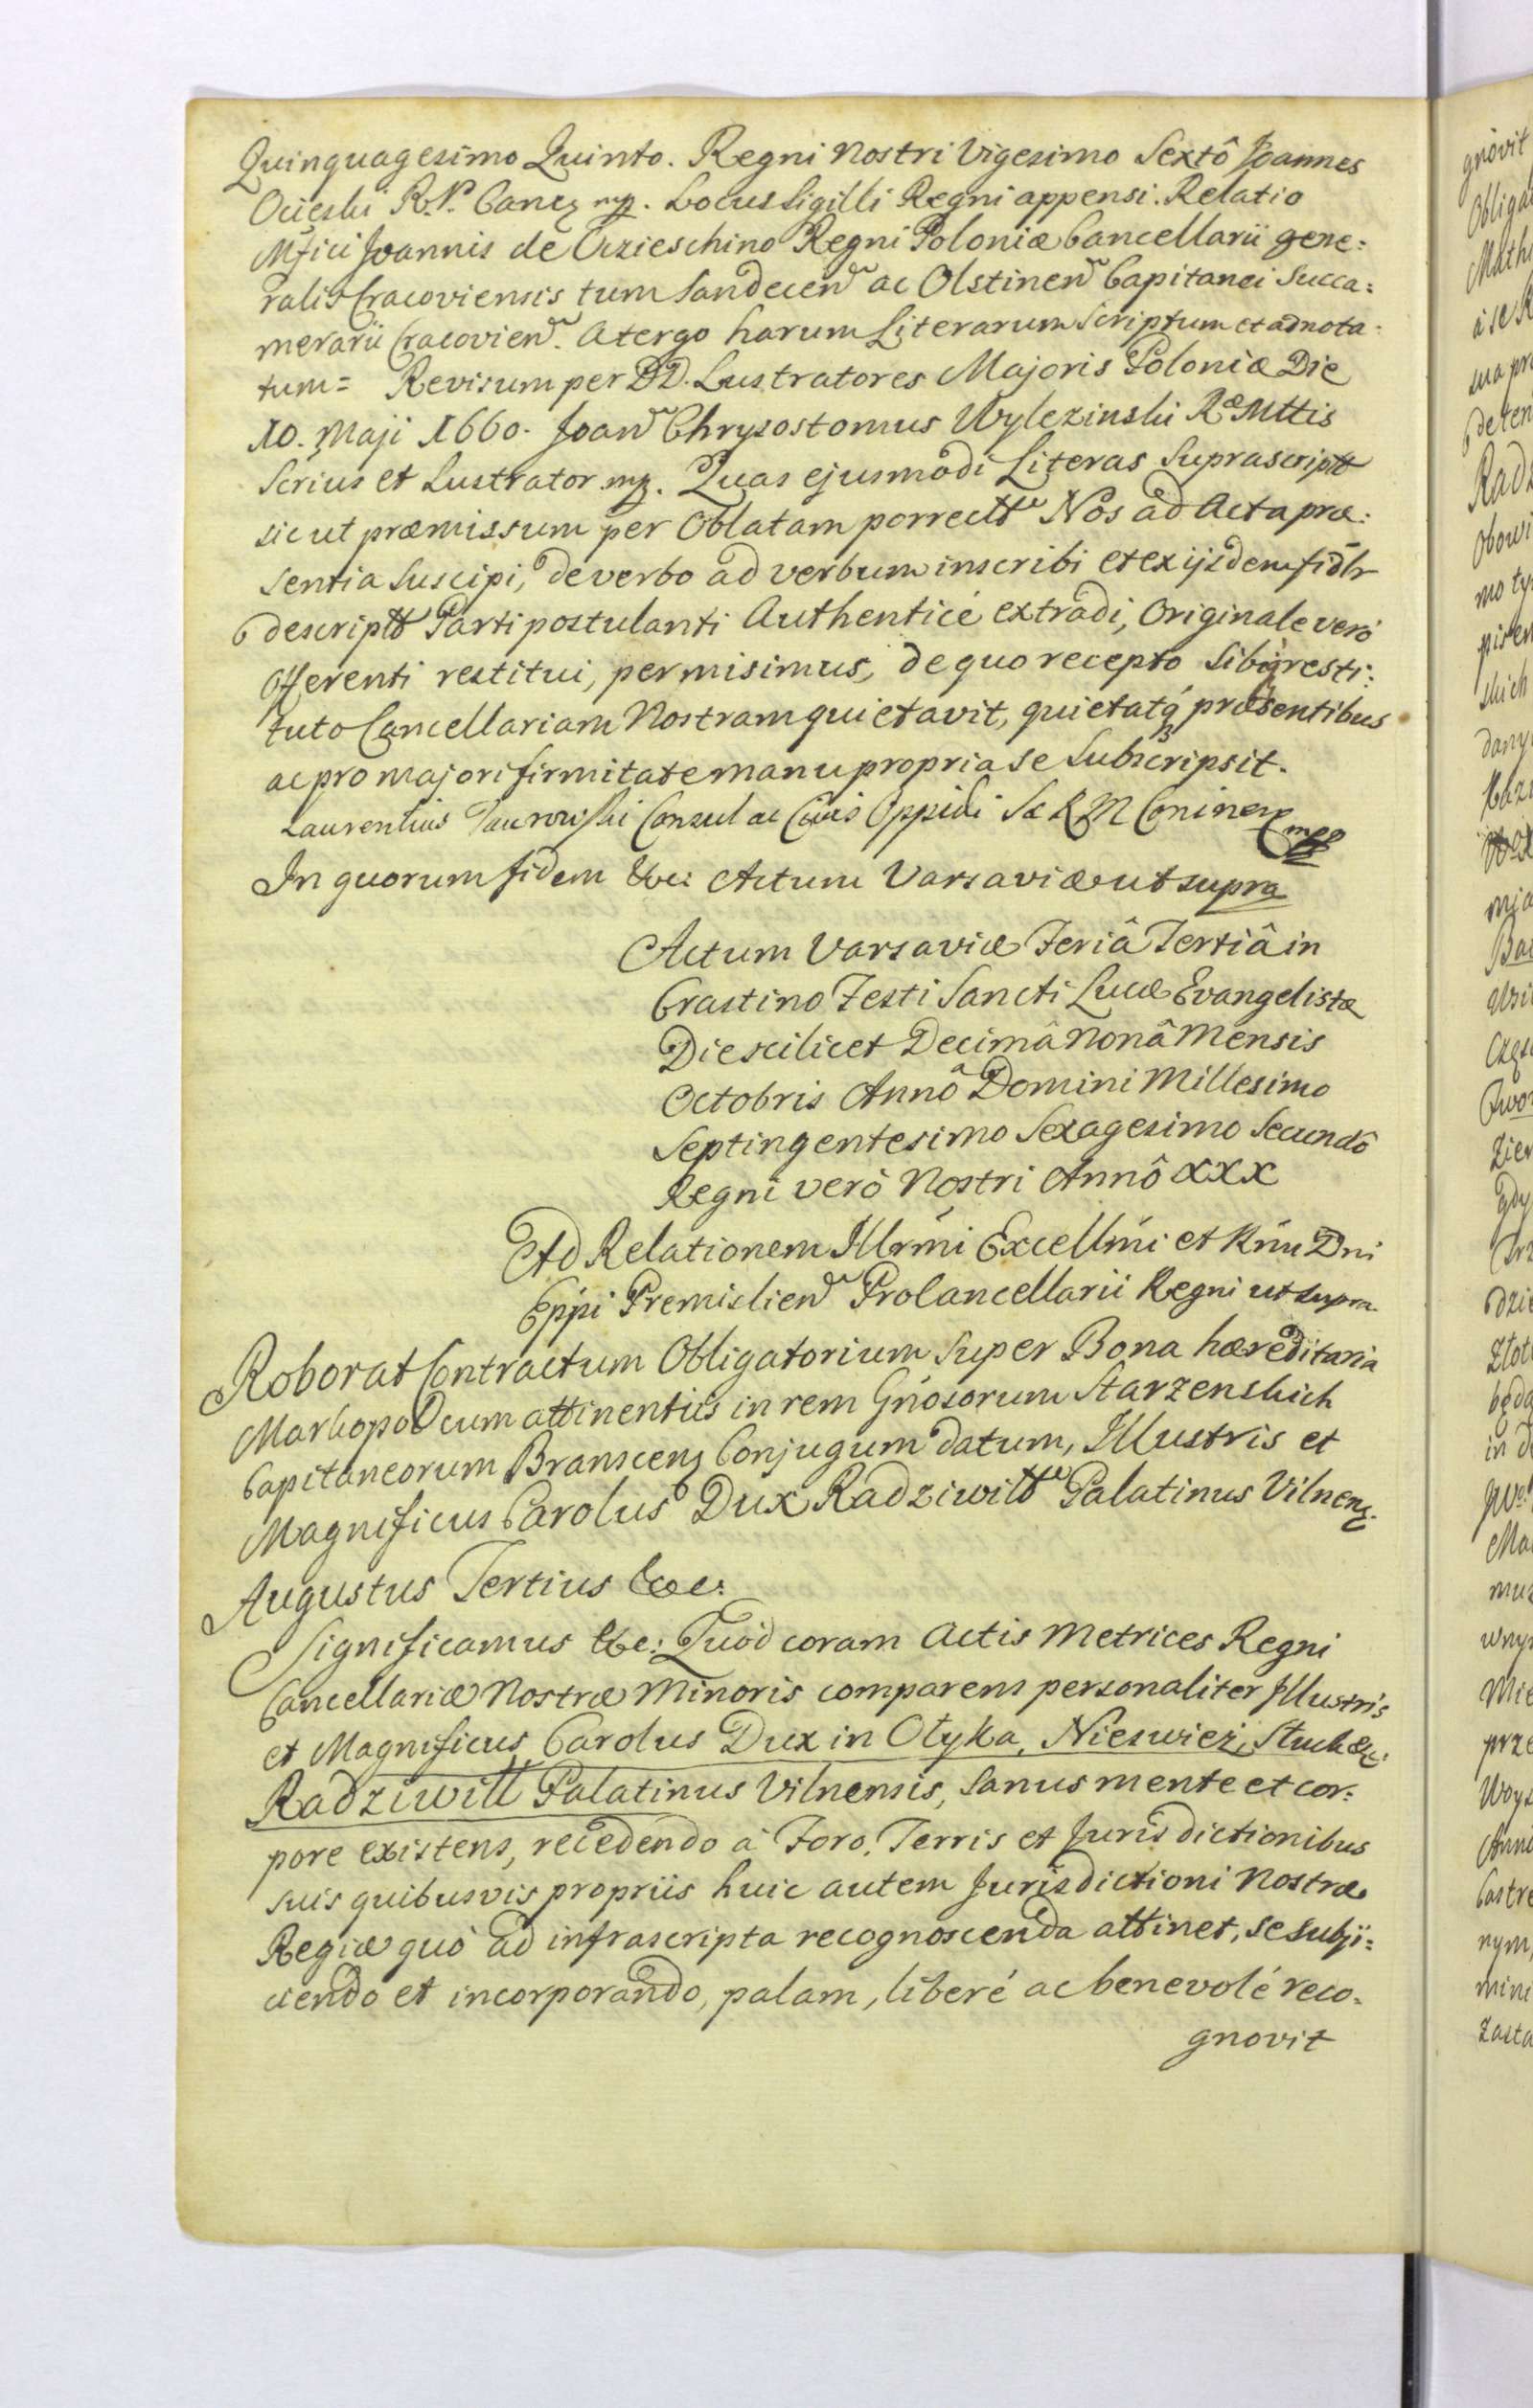 Quinquagesimo Quinto. Regni Nostri Vigesimo Sextô Joannes
Ocieski R. P. Canc. mp. Locus Sigilli Regni appensi. Relatio
Mfici Joannis de Oczieschino Regni Poloniæ Cancellarii gene:
ralis Cracoviensis tum Sandecen ac Olstinen Capitanei Succa:
merarii Cracovien. Atergo harum Literarum Scriptum et adnota:
tum = Revisum per DD. Lustratores Majoris Poloniæ Die
10. Maji 1660. Joan Chrysostomus Wylezinski Ræ Mttis
Scrius et Lustrator mp. Quas ejusmodi Literas Suprascriptt
sicut præmissum per Oblatam porrectt Nos ad Acta præ:
sentia Suscipi, de verbo ad verbum inscribi et ex ijsdem fidlr
descriptt Parti postulanti Authenticé extradi, Originale veró
Offerenti restitui, permisimus, de quo recepto Sibiq resti:
tuto Cancellariam Nostram quietavit, quietatq præsentibus
ac pro majori firmitate manu propria se Subscripsit.
Laurentius Taurowski Consul ac Civis Oppidi Sæ R M Coninen mp
In quorum fidem &c: Actum Varsaviæ ut supra
Actum Varsaviæ Feriâ Tertiâ in
Crastino Festi Sancti Lucæ Evangelistæ
Die scilicet Decimâ Nonâ Mensis
Octobris Annô Domini Millesimo
Septingentesimo Sexagesimo Secundô
Regni verò Nostri Annô XXX
Ad Relationem Illrmi Excellmi et Rmi Dni
Eppi Premislien Procancellarii Regni ut supra
Roborat Contractum Obligatorium Super Bona hæreditaria
Markopol cum attinentiis in rem Gnosorum Starzenskich
Capitaneorum Branscen Conjugum datum, Illustris et
Magnificus Carolus Dux Radziwitt Palatinus Vilnen.
Augustus Tertius &c:
Significamus &c: Quod coram Actis Metrices Regni
Cancellariæ Nostræ Minoris comparens personaliter Illustris
et Magnificus Carolus Dux in Otyka, Nieswiez, Stuck &c:
Radziwitt Palatinus Vilnensis, Sanus mente et cor:
pore existens, recedendo à Foro, Terris et Jurisdictionibus
suis quibusvis propriis huic autem Jurisdictioni Nostræ
Regiæ quò ad infrascripta recognoscenda attinet, se subjı:
ciendo et incorporando, palam, liberé ac benevolé reco:
gnovit